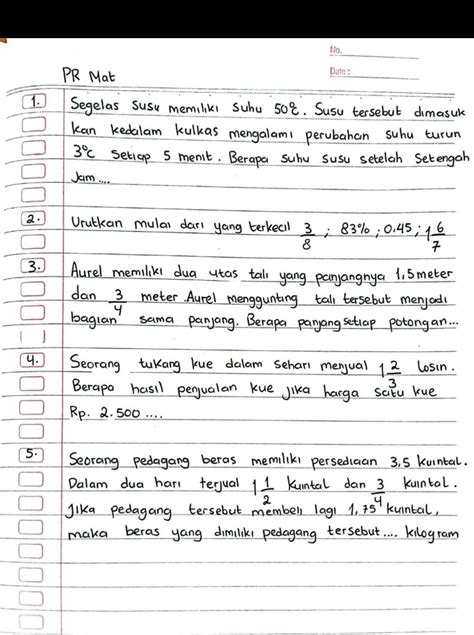 No.
Date:
PR Mat
1. Segelas susu memiliki suhu 50℃. Susu tersebut dimasuk
kan kedalam kulkas mengalami perubahan suhu turun
3℃ setiap 5 menit. Berapa suhu susu setelah setengah
Jam....
2. Urutkan mulai dari yang terkecil 3/8 ; 83% ; 0.45 ; 1 6/7
3. Aurel memiliki dua utas tali yang panjangnya 1,5 meter
dan 3/4 meter Aurel menggunting tali tersebut menjadi
bagian sama panjang. Berapa panjang setiap potongan...
4. Seorang tukang kue dalam sehari menjual 1 2/3 losin.
Berapa hasil penjualan kue jika harga satu kue
Rp. 2.500 ....
5. Seorang pedagang beras memiliki persediaan 3,5 kuintal.
Dalam dua hari terjual 1 1/2 kuintal dan 3/4 kuintal.
Jika pedagang tersebut membeli lagi 1,75 kuintal,
maka beras yang dimiliki pedagang tersebut.... kilogram